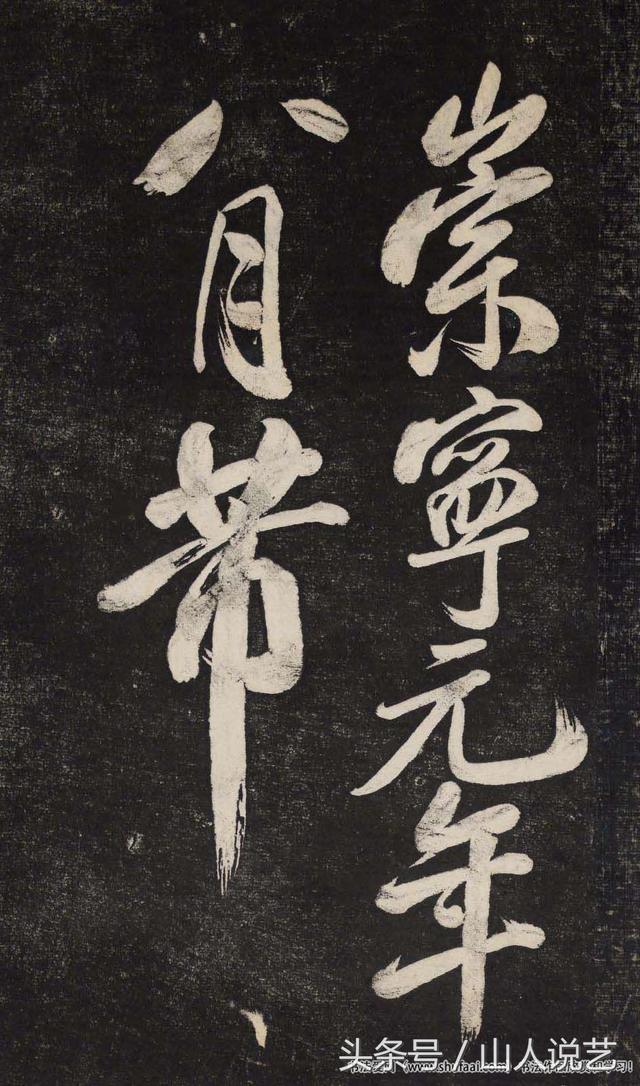 崇寧元年
八月芾
头条号 / 山人说艺
www.shufaai.com